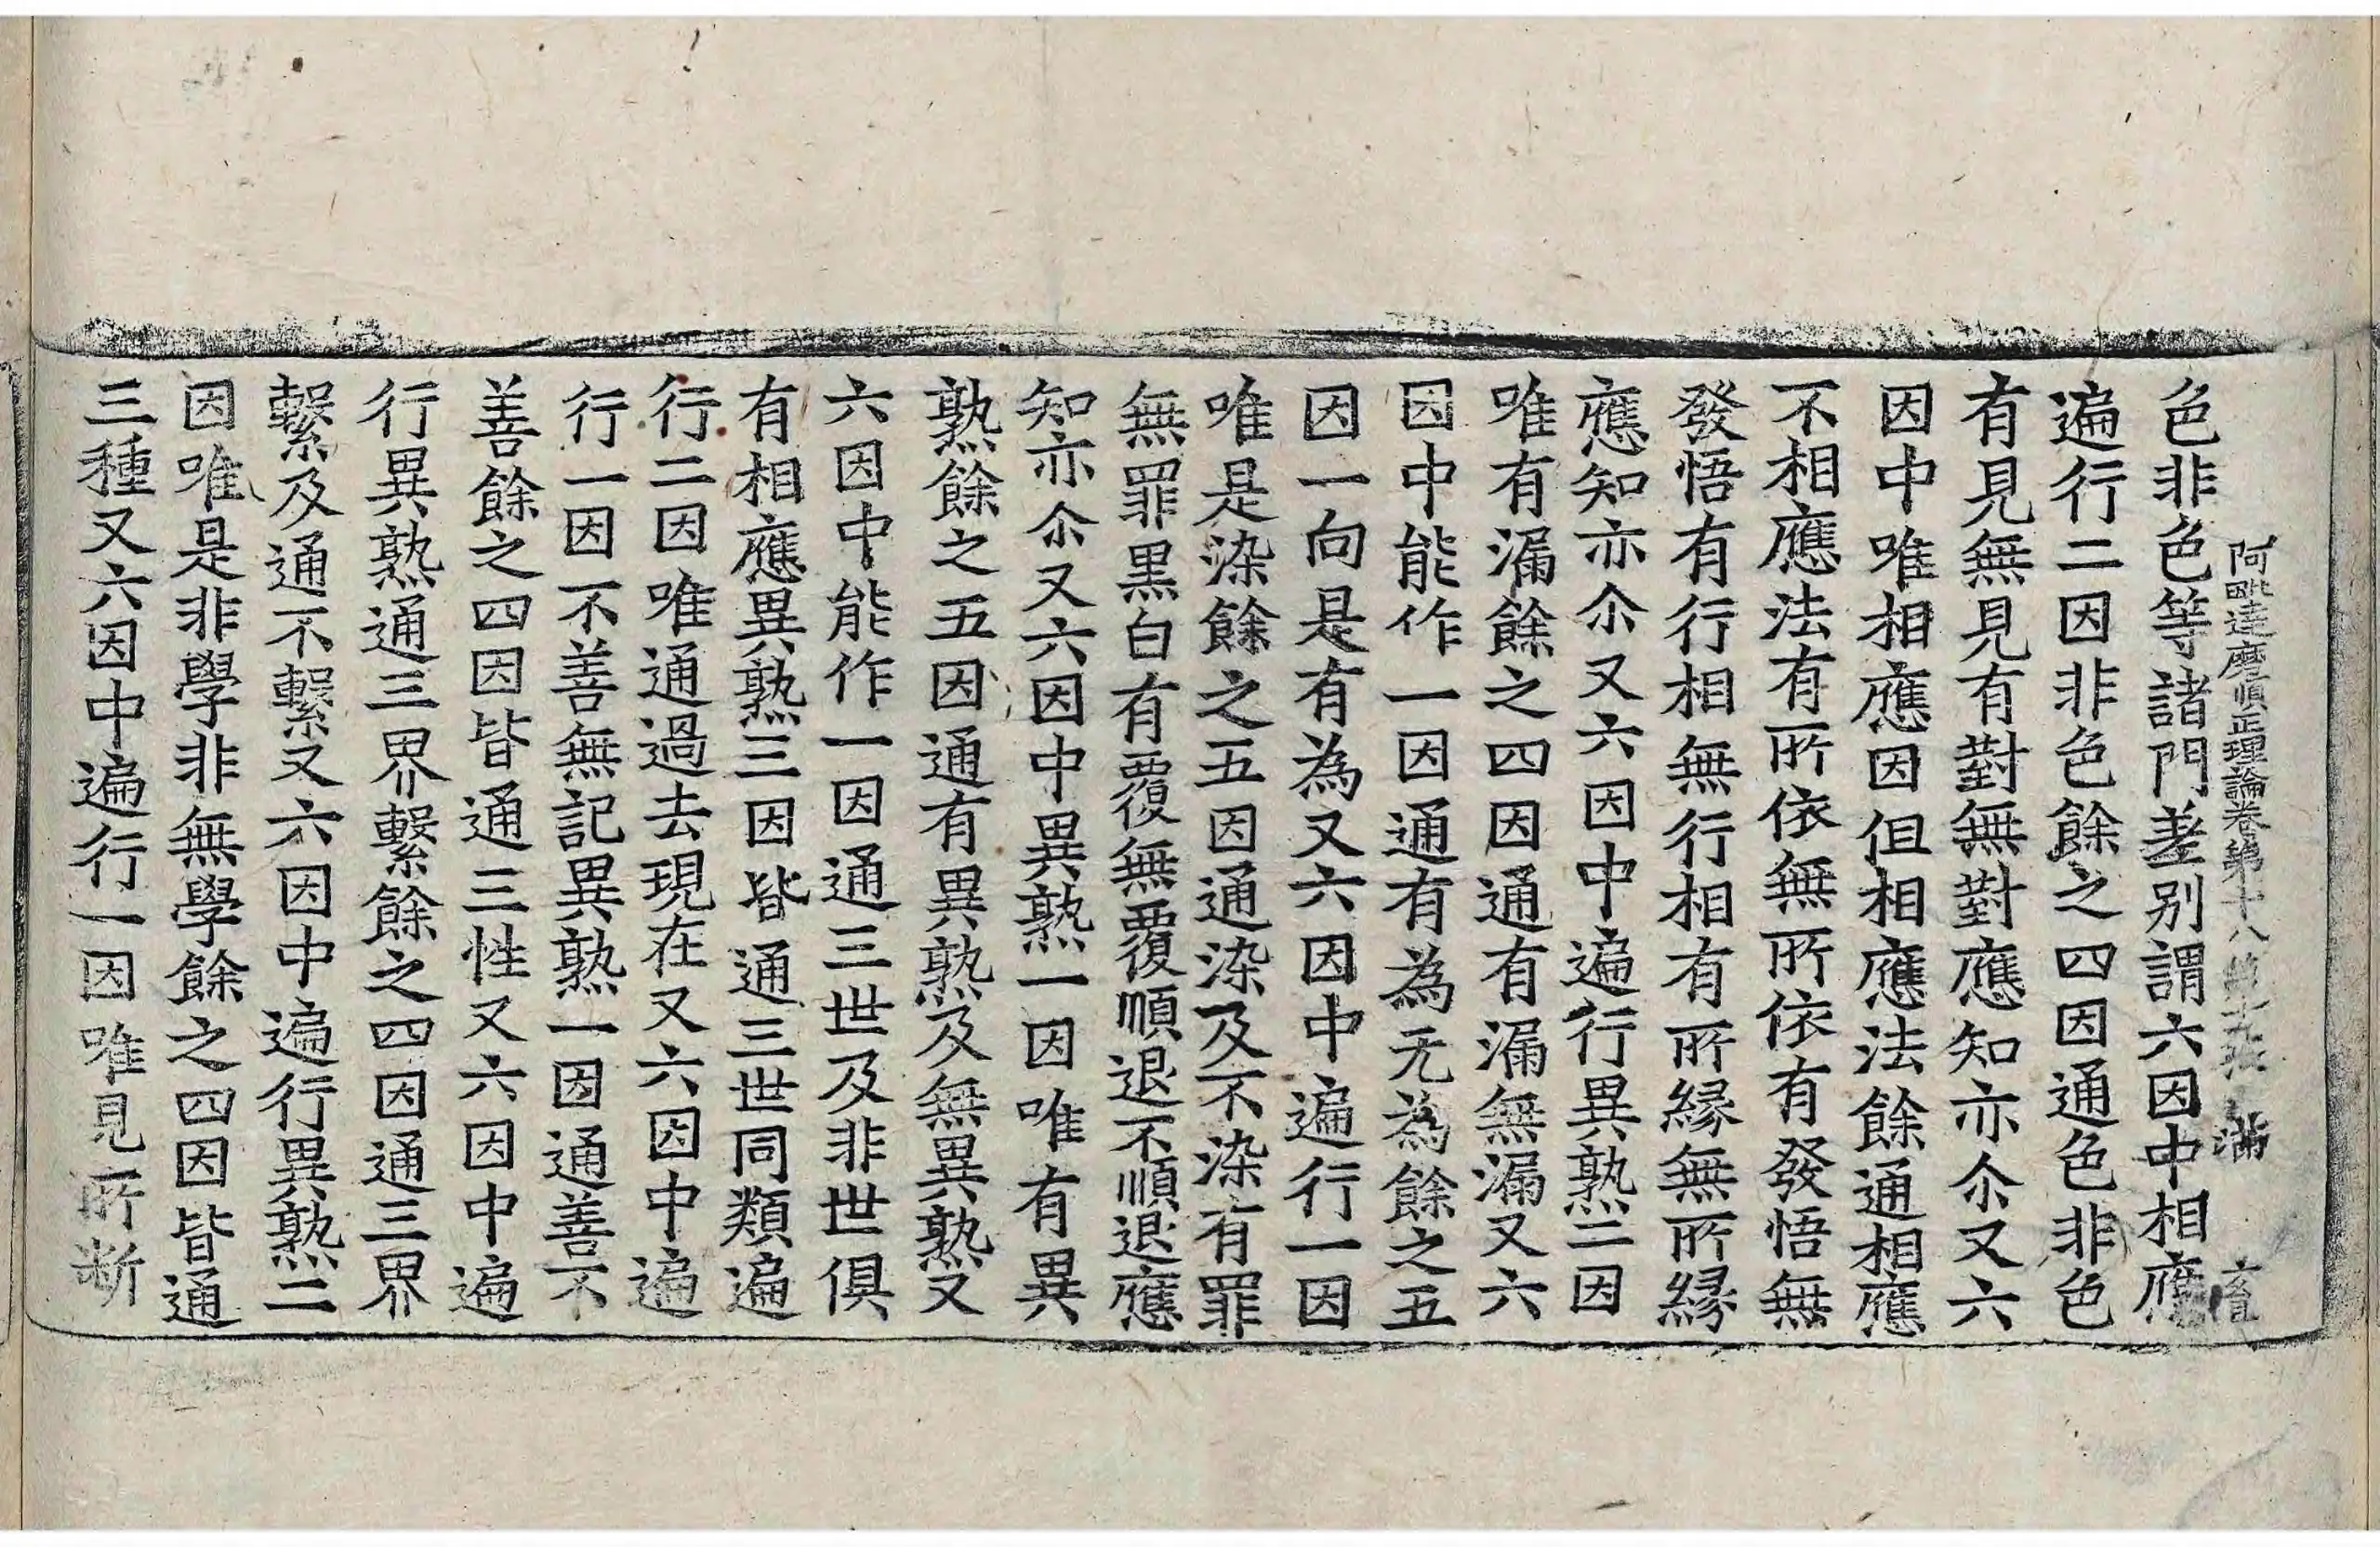 阿毗達磨順正理論卷第十八 滿
色非色等諸門差别謂六因中相應
遍行二因非色餘之四因通色非色
有見無見有對無對應知亦尒又六
因中唯相應因但相應法餘通相應
不相應法有所依無所依有發悟無
發悟有行相無行相有所縁無所縁
應知亦尒又六因中遍行異熟二因
唯有漏餘之四因通有漏無漏又六
因中能作一因通有為无為餘之五
因一向是有為又六因中遍行一因
唯是染餘之五因通染及不染有罪
無罪黒白有覆無覆順退不順退應
知亦尒又六因中異熟一因唯有異
熟餘之五因通有異熟及無異熟又
六因中能作一因通三世及非世俱
有相應異熟三因皆通三世同類遍
行二因唯通過去現在又六因中遍
行一因不善無記異熟一因通善不
善餘之四因皆通三性又六因中遍
行異熟通三界繫餘之四因通三界
繫及通不繫又六因中遍行異熟二
因唯是非學非無學餘之四因皆通
三種又六因中遍行一因唯見所断